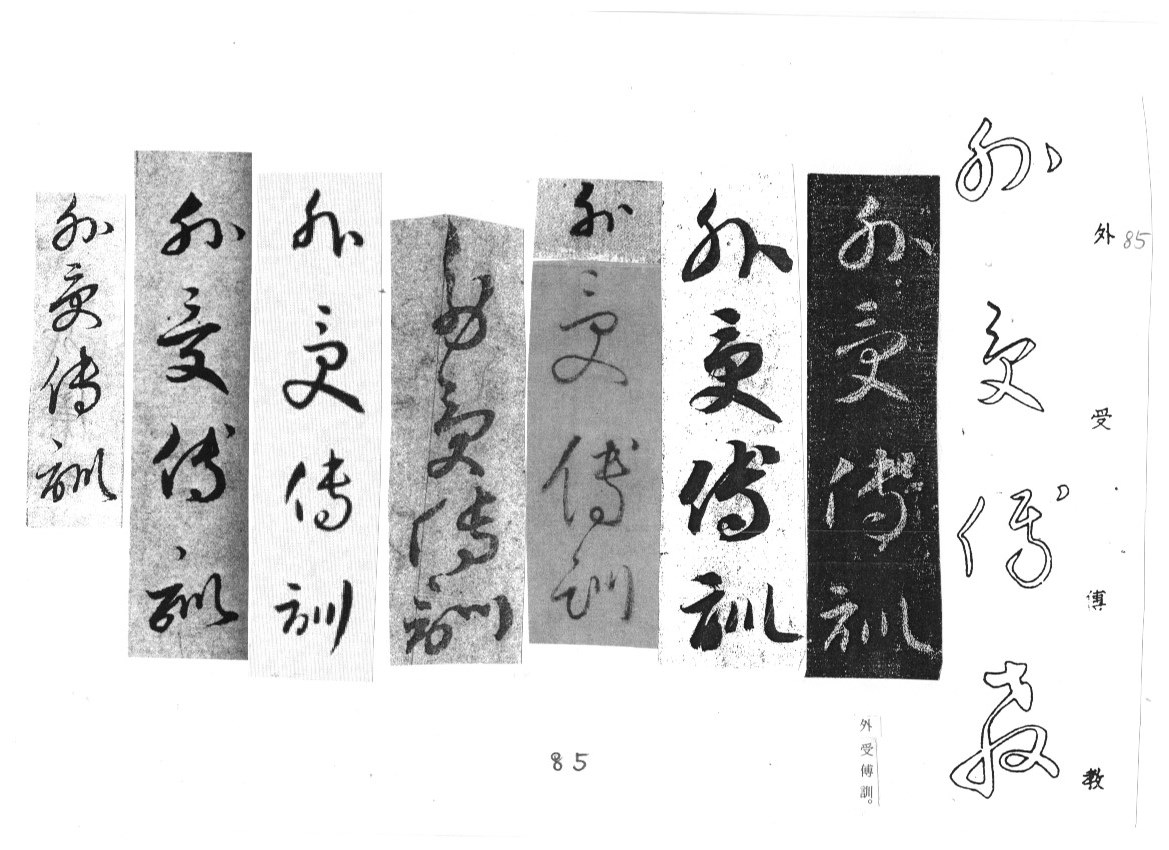 外受傅教
85
外受傅教
外受傅訓
外受傅訓
外受傅訓
外受傅訓
外受傅訓
外受傅訓
外受傅訓
外受傅訓。
85